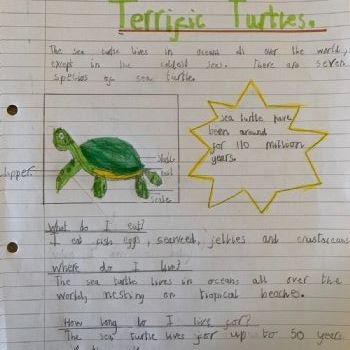 Terrific Turtles.
The sea turtle lives in oceans all over the world,
except in the coldest seas. There are seven
species of sea turtle.
sea turtle have
been around
for 110 million
years.
flipper.
tail
scale
What do I eat?
I eat fish eggs, seaweed, jellies and crustaceans
Where do I live?
The sea turtle lives in oceans all over the
world, nesting on tropical beaches.
How long do I live for?
The sea turtle lives for up to 50 years